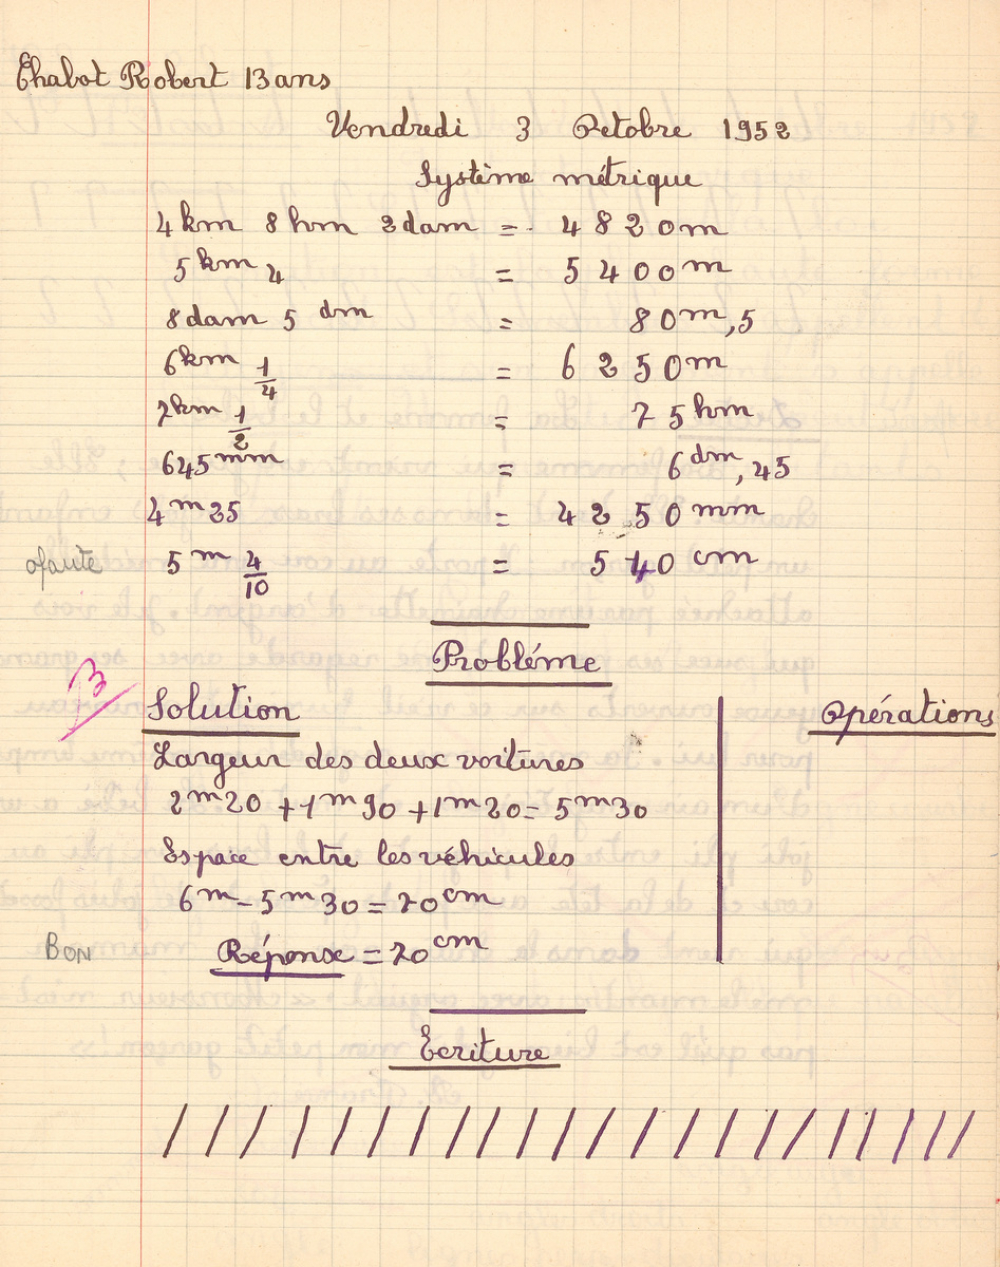 Chabot Robert 13 ans
Vendredi 3 Octobre 1952
Système métrique
4 km 8 hm 2 dam = 4820 m
5 km 4 = 5400 m
8 dam 5 dm = 80 m,5
6 km 1/4 = 6250 m
7 km 1/2 = 75 hm
645 mm = 6 dm,45
4 m 25 = 4250 mm
0 faute 5 m 4/10 = 540 cm
Probléme
3
Solution Opérations
Largeur des deux voitures
2 m 20 + 1 m 90 + 1 m 20 = 5 m 30
Espace entre les véhicules
6 m - 5 m 30 = 70 cm
BON Réponse = 70 cm
Ecriture